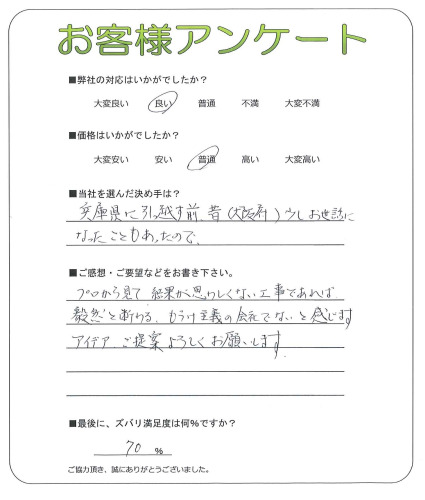 お客様アンケート
■弊社の対応はいかがでしたか?
大変良い 良い 普通 不満 大変不満
■価格はいかがでしたか?
大変安い 安い 普通 高い 大変高い
■当社を選んだ決め手は?
兵庫県に引っ越す前、昔(大阪府)少しお世話に
なったこともあったので、
■ご感想・ご要望などをお書き下さい。
プロから見て結果が思わしくない工事であれば
毅然と断わる、もうけ主義の会社でないと感じます
アイデア、ご提案よろしくお願いします。
■最後に、ズバリ満足度は何%ですか?
70 %
ご協力頂き、誠にありがとうございました。